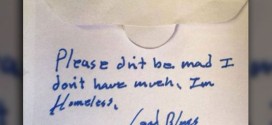 Please don't be mad I
don't have much. Im
Homeless.
God Bless